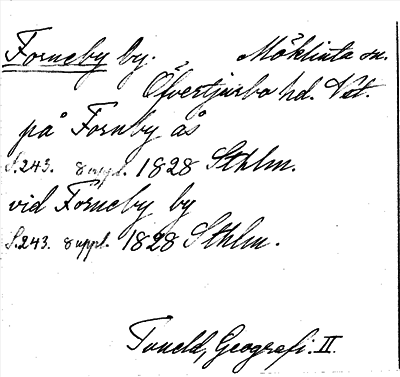 Forneby by. Möklinta sn.
Öfvertjurbo hd. Vst.
på Fornby ås
S.243. 8 uppl. 1828 Sthlm.
vid Forneby by
S.243. 8 uppl. 1828 Sthlm.
Tuneld, Geografi. II.